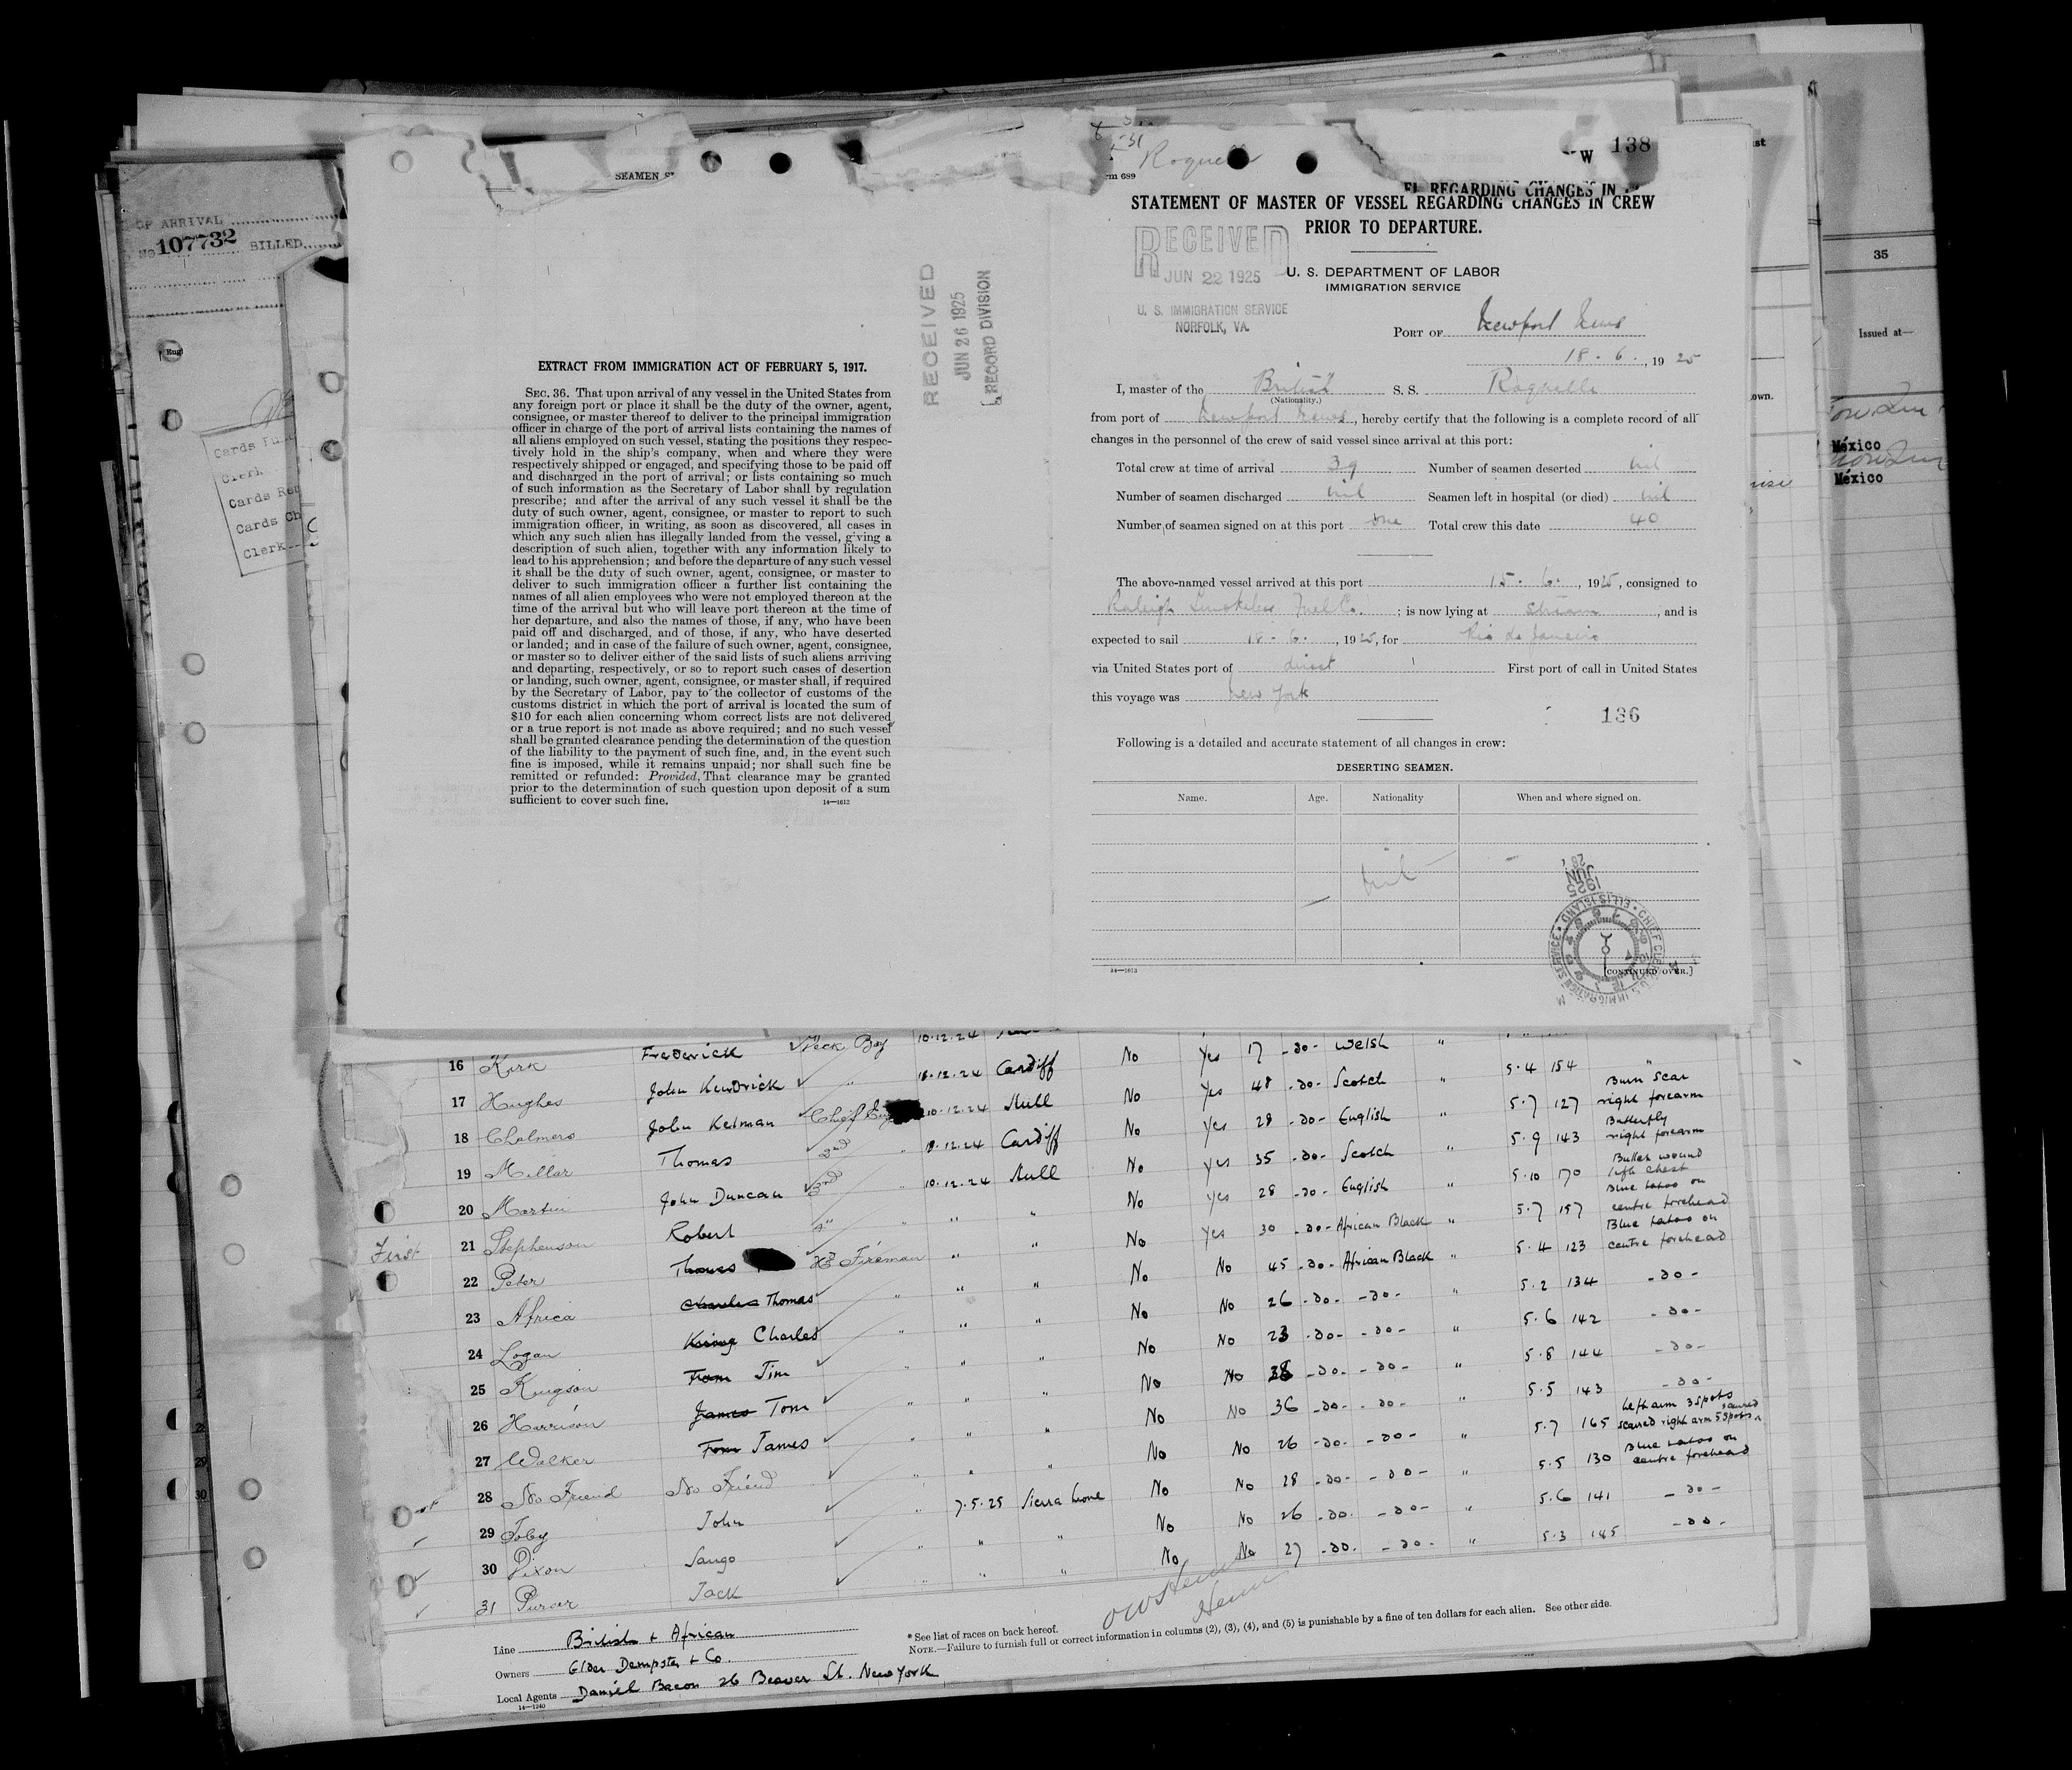 OF ARRIVAL
No 107732 BILLED
Cards
Clerk
Cards
Cards Ch
Clerk
SEAMEN
RECEIVED
JUN 26 1925
RECORD DIVISION
EXTRACT FROM IMMIGRATION ACT OF FEBRUARY 5, 1917.
SEC. 36. That upon arrival of any vessel in the United States from
any foreign port or place it shall be the duty of the owner, agent,
consignee, or master thereof to deliver to the principal immigration
officer in charge of the port of arrival lists containing the names of
all aliens employed on such vessel, stating the positions they respec-
tively hold in the ship's company, when and where they were
respectively shipped or engaged, and specifying those to be paid off
and discharged in the port of arrival; or lists containing so much
of such information as the Secretary of Labor shall by regulation
prescribe; and after the arrival of any such vessel it shall be the
duty of such owner, agent, consignee, or master to report to such
immigration officer, in writing, as soon as discovered, all cases in
which any such alien has illegally landed from the vessel, giving a
description of such alien, together with any information likely to
lead to his apprehension; and before the departure of any such vessel
it shall be the duty of such owner, agent, consignee, or master to
deliver to such immigration officer a further list containing the
names of all alien employees who were not employed thereon at the
time of the arrival but who will leave port thereon at the time of
her departure, and also the names of those, if any, who have been
paid off and discharged, and of those, if any, who have deserted
or landed; and in case of the failure of such owner, agent, consignee,
or master so to deliver either of the said lists of such aliens arriving
and departing, respectively, or so to report such cases of desertion
or landing, such owner, agent, consignee, or master shall, if required
by the Secretary of Labor, pay to the collector of customs of the
customs district in which the port of arrival is located the sum of
$10 for each alien concerning whom correct lists are not delivered
or a true report is not made as above required; and no such vessel
shall be granted clearance pending the determination of the question
of the liability to the payment of such fine, and, in the event such
fine is imposed, while it remains unpaid; nor shall such fine be
remitted or refunded: Provided, That clearance may be granted
prior to the determination of such question upon deposit of a sum
sufficient to cover such fine.
14—1612
W 138
rm 689
EL REGARDING CHANGES IN
STATEMENT OF MASTER OF VESSEL REGARDING CHANGES IN CREW
PRIOR TO DEPARTURE.
RECEIVED
JUN 22 1925
U. S. IMMIGRATION SERVICE
NORFOLK, VA.
U. S. DEPARTMENT OF LABOR
IMMIGRATION SERVICE
PORT OF Newport News
18 - 6 . , 19 25
I, master of the British S. S. Roquelle
(Nationality.)
from port of Newport News, hereby certify that the following is a complete record of all
changes in the personnel of the crew of said vessel since arrival at this port:
Total crew at time of arrival 39 Number of seamen deserted nil
Number of seamen discharged nil Seamen left in hospital (or died) nil
Number of seamen signed on at this port one Total crew this date 40
The above-named vessel arrived at this port 15 . 6 . , 1925, consigned to
Raleigh Smokeless Fuel Co. ; is now lying at stream , and is
expected to sail 18 - 6 . , 1925, for Rio de Janeiro
via United States port of direct First port of call in United States
this voyage was New York
136
Following is a detailed and accurate statement of all changes in crew:
DESERTING SEAMEN.
Name. Age. Nationality When and where signed on.
nil
14—1612
[CONTINUED OVER.]
JUN
1925
35
Issued at—
México
México
16 Kirk Frederick Deck Boy 10.12.24
17 Hughes John Kendrick " 10.12.24 Cardiff No Yes 17 -do- Welsh "
18 Chalmers John Kelman Chief Eng 10.12.24 Hull No Yes 48 -do- Scotch " 5.4 154
19 Millar Thomas 2nd " 10.12.24 Cardiff No Yes 28 -do- English " 5.7 127 Burn Scar right forearm
20 Martin John Duncan 3rd " 10.12.24 Hull No Yes 35 -do- Scotch " 5.9 143 Butterfly right forearm
21 Stephenson Robert 4" " " " No Yes 28 -do- English " 5.10 170 Bullet wound left chest
22 Peter Thomas Fireman " " No Yes 30 -do- African Black " 5.7 157 Blue tatoo on centre forehead
23 Africa Charles Thomas " " " No No 45 -do- African Black " 5.4 123 Blue tatoo on centre forehead
24 Logan Charles " " " No No 26 -do- -do- " 5.2 134 -do-
25 Kingson Tom Jim " " " No No 23 -do- -do- " 5.6 142 -do-
26 Harrison James Tom " " " No No 38 -do- -do- " 5.8 144 -do-
27 Walker Tom James " " " No No 36 -do- -do- " 5.5 143 -do-
28 No Friend No Friend " " " No No 26 -do- -do- " 5.7 165 Left arm 3 spots scarred right arm 5 spots
29 Toby John " 7.5.25 Sierra Leone No No 28 -do- -do- " 5.5 130 Blue tatoo on centre forehead
30 Dixon Sango " " " No No 26 -do- -do- " 5.6 141 -do-
31 Purser Jack " " " No No 27 -do- -do- " 5.3 145 -do-
First
Line British & African
Owners Elder Dempster & Co.
Local Agents Daniel Bacon 26 Beaver St. New York
14—1240
* See list of races on back hereof.
NOTE.—Failure to furnish full or correct information in columns (2), (3), (4), and (5) is punishable by a fine of ten dollars for each alien. See other side.